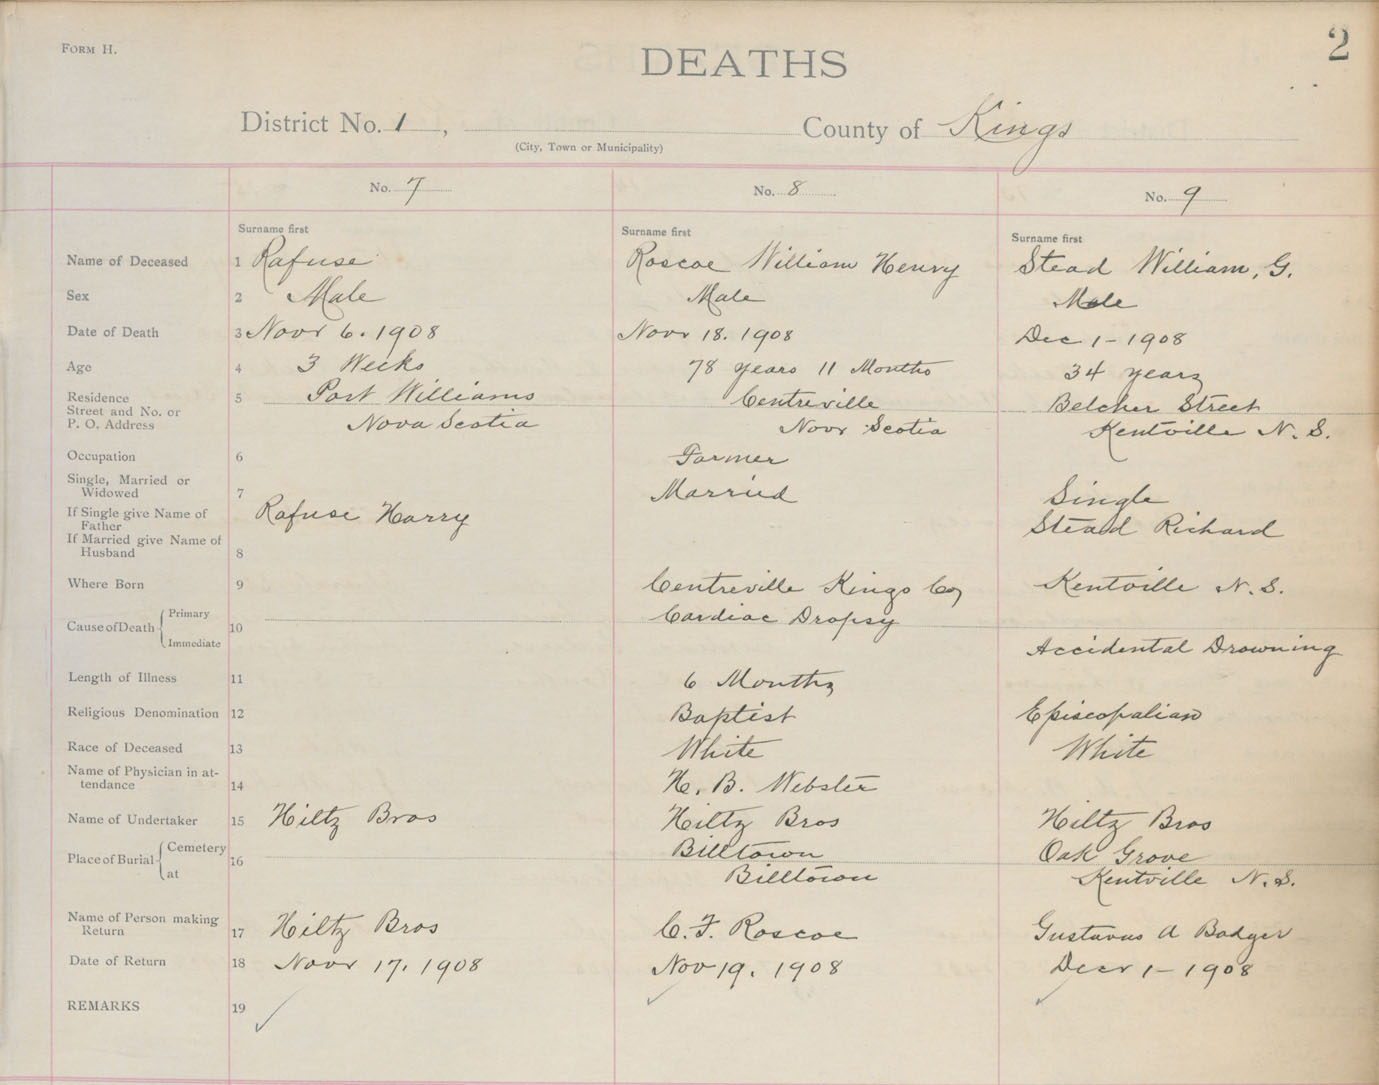 FORM H.
2
DEATHS
District No. 1, County of Kings
(City, Town or Municipality)
No. 7 No. 8 No. 9
Surname first Surname first Surname first
Name of Deceased 1 Rafuse Roscoe William Henry Stead William, G.
Sex 2 Male Male Male
Date of Death 3 Novr 6. 1908 Novr 18. 1908 Dec 1 - 1908
Age 4 3 Weeks 78 years 11 Months 34 years
Residence 5 Port Williams Centreville Belcher Street
Street and No. or
P. O. Address Nova Scotia Nova Scotia Kentville N. S.
Occupation 6 Farmer
Single, Married or
Widowed 7 Married Single
If Single give Name of
Father Rafuse Harry Stead Richard
If Married give Name of
Husband 8
Where Born 9 Centreville Kings Co, Kentville N. S.
Cause of Death 10 Primary Cardiac Dropsy
Immediate Accidental Drowning
Length of Illness 11 6 Months
Religious Denomination 12 Baptist Episcopalian
Race of Deceased 13 White White
Name of Physician in at-
tendance 14 H. B. Webster
Name of Undertaker 15 Hiltz Bros Hiltz Bros Hiltz Bros
Place of Burial 16 Cemetery Billtown Oak Grove
at Billtown Kentville N. S.
Name of Person making
Return 17 Hiltz Bros C. F. Roscoe Gustavus A Badger
Date of Return 18 Novr 17, 1908 Nov 19. 1908 Decr 1 - 1908
REMARKS 19